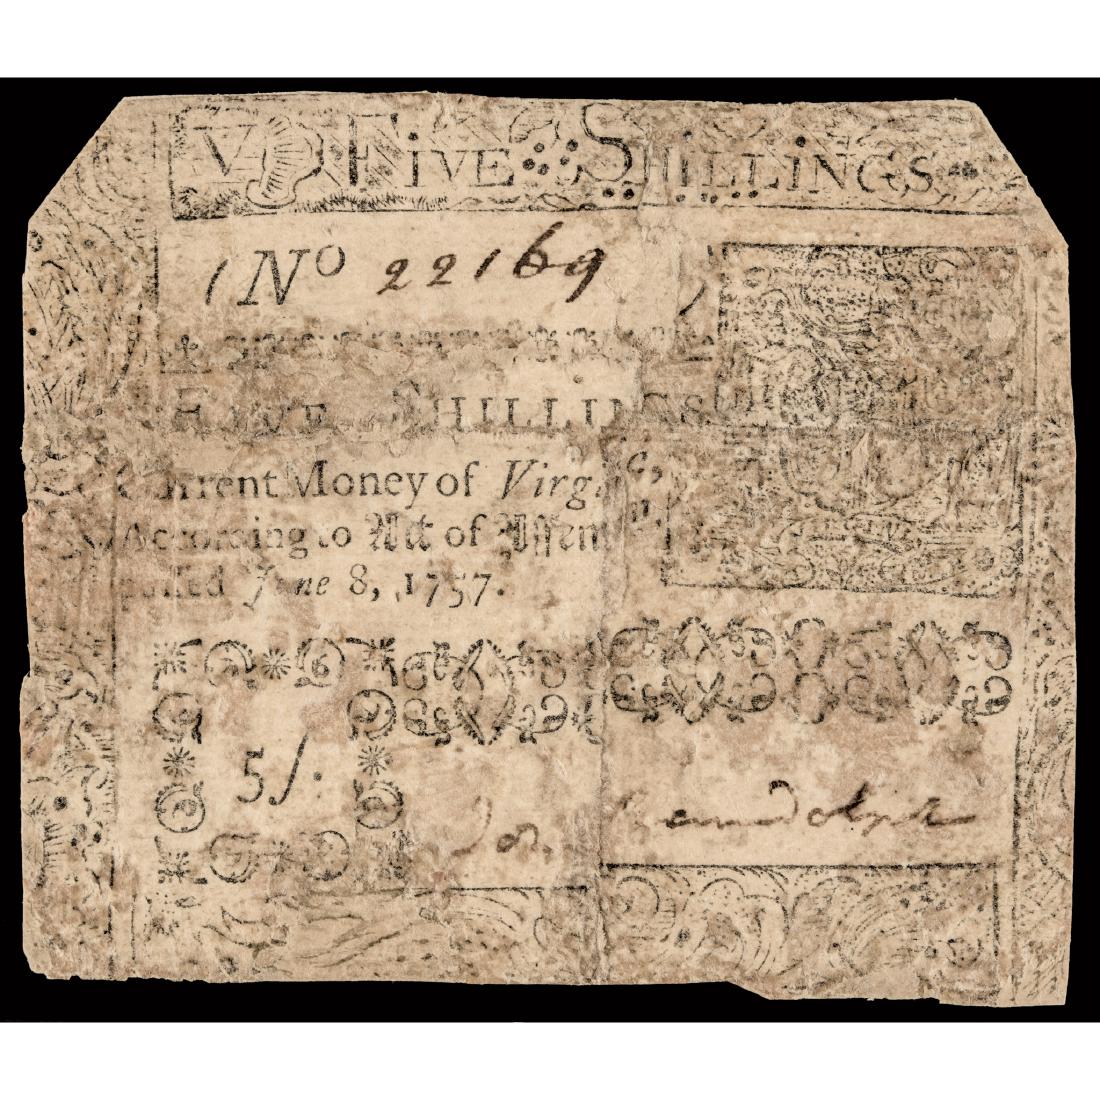 V FIVE SHILLINGS
No 22169
FIVE SHILLINGS
Current Money of Virg
According to Act of Assem
passed June 8, 1757.
5/.
Randolph